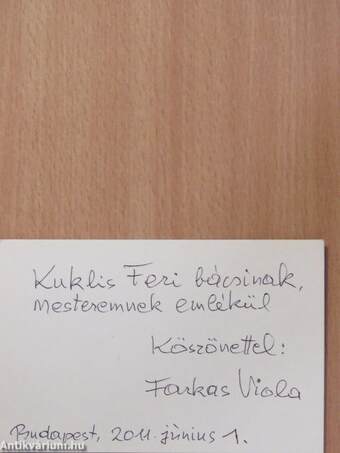 Kuklis Feri bácsinak,
mesteremnek emlékül
Köszönettel:
Farkas Viola
Budapest, 2011. június 1.
Antikvarium.hu